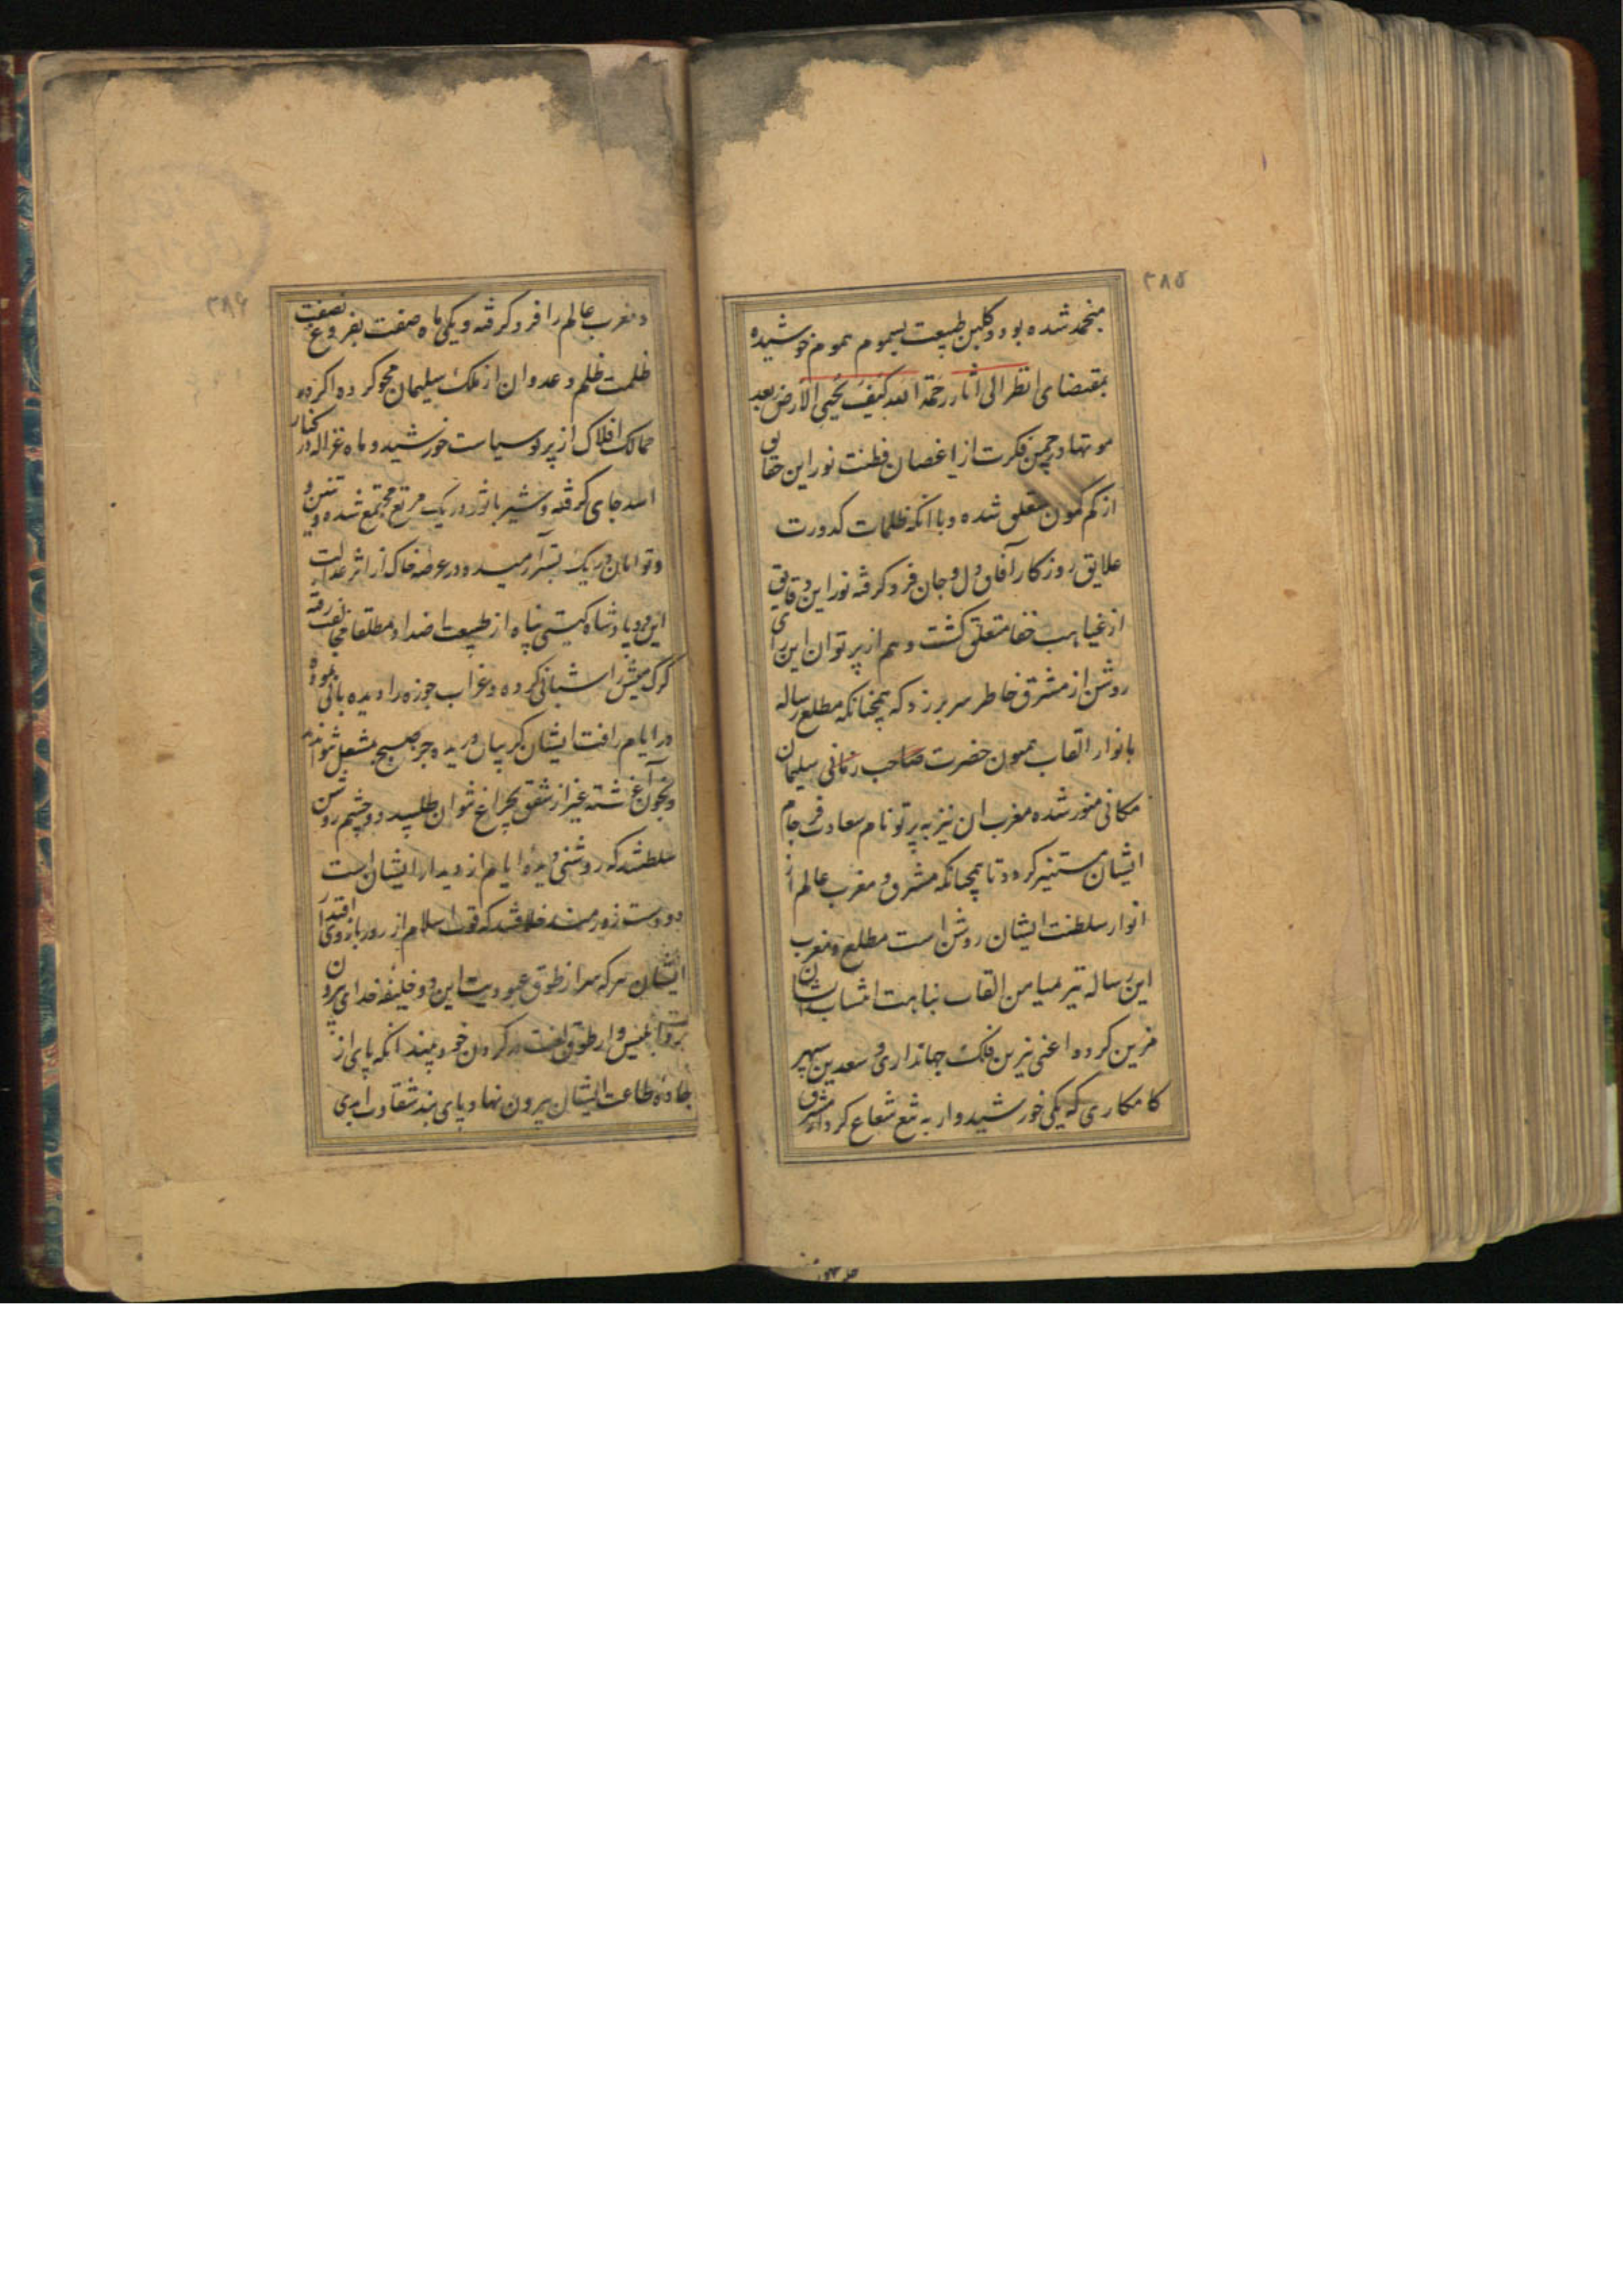 ۳۸۵
منجمد شده بود و گلبن طبیعت بسموم هموم خوشیده
بمقتضای انظر الی اثار رحمة الله کیف یحیی الارض بعد
موتها در چمن فکرت از اغصان فطنت نور این حقایق
از کم کمون متعلق شده و با انکه ظلمات کدورت
علایق روزکار آفاق دل و جان فرو کرفته نور این دقایق
از غیاهب خفا متعلق کشت و هم از پرتو ان این رای
روشن از مشرق خاطر سر بر زد که همچنانکه مطلع رساله
بانوار القاب همیون حضرت صاحب زمانی سلیمان
مکانی منور شده مغرب ان نیز به پرتو نام سعادت فرجام
ایشان مستنیر کردد تا همچنانکه مشرق و مغرب عالم از
انوار سلطنت ایشان روشن است مطلع و مغرب
این رساله نیز بمیامن القاب نباهت انتساب ایشان
مزین کردد اعنی نیرین فلک جهانداری و سعدین سپهر
کامکاری که یکی خورشیدوار به تیغ شعاع کردار مشرق
۳۸۶
و مغرب عالم را فرو کرفته و یکی ماه صفت بفروغ نصفت
ظلمت ظلم و عدوان از ملک سلیمان محو کرده اکر در
ممالک افلاک از پرتو سیاست خورشید و ماه غزاله در کنار
اسد جای کرفته و شیر با ثور در یک مرتع مجتمع شده و تنین
و توامان در یک بستر آرمیده در عرصه خاک از اثر عدالت
این دو پادشاه کیتی پناه از طبیعت اضداد مطلقا مخالفت رفته
کرک میش را شبانی کرده و غراب جوزه را دیده بانی نموده
در ایام رافت ایشان کریبان دریده جز صبح بمشعل نتواند
و بخون آغشته غیر از شفق بچراغ نتوان طلبید دو چشم روشن
سلطنتند که روشنی دیده ایام از دیدار ایشان است
دو دست زورمند خلافتند که قوت اسلام از زور بازوی اقتدار
ایشان هر که سر از طوق عبودیت این دو خلیفه خدای بیرون
برد ابلیس وار طوق لعنت در کردن خود بیند و انکه پای از
جاده طاعت ایشان بیرون نهاد پای بند شقاوت ابدی